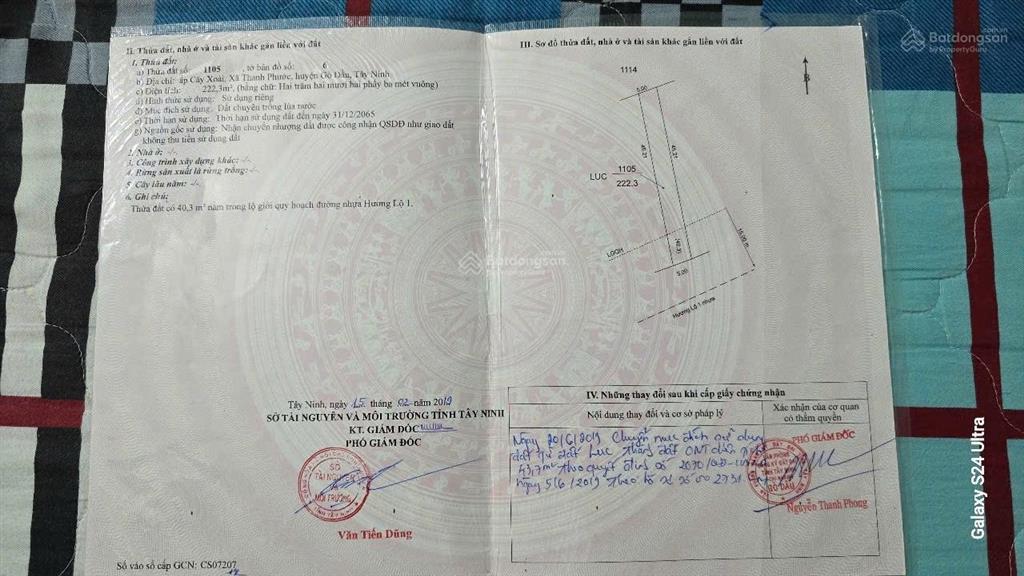 II. Thửa đất, nhà ở và tài sản khác gắn liền với đất
1. Thửa đất:
a) Thửa đất số: 1105 , tờ bản đồ số: 6
b) Địa chỉ: ấp Cây Xoài, Xã Thanh Phước, huyện Gò Dầu, Tây Ninh
c) Diện tích: 222,3m², (bằng chữ: Hai trăm hai mươi hai phẩy ba mét vuông)
d) Hình thức sử dụng: Sử dụng riêng
đ) Mục đích sử dụng: Đất chuyên trồng lúa nước
e) Thời hạn sử dụng: Thời hạn sử dụng đất đến ngày 31/12/2065
g) Nguồn gốc sử dụng: Nhận chuyển nhượng đất được công nhận QSDĐ như giao đất
không thu tiền sử dụng đất
2. Nhà ở: -/-
3. Công trình xây dựng khác: -/-
4. Rừng sản xuất là rừng trồng: -/-
5. Cây lâu năm: -/-
6. Ghi chú:
Thửa đất có 40,3 m² nằm trong lộ giới quy hoạch đường nhựa Hương Lộ 1.
Tây Ninh, ngày 15 tháng 02 năm 2019
SỞ TÀI NGUYÊN VÀ MÔI TRƯỜNG TỈNH TÂY NINH
KT. GIÁM ĐỐC
PHÓ GIÁM ĐỐC
SỞ
TÀI NGUYÊN
MÔI TRƯỜNG
Văn Tiến Dũng
Số vào sổ cấp GCN: CS07207
III. Sơ đồ thửa đất, nhà ở và tài sản khác gắn liền với đất
1114
B
5.00
45.21
45.21
LUC
1105
222.3
LGQH
(40.3)
5.00
16.00 m
Hương Lộ 1 nhựa
IV. Những thay đổi sau khi cấp giấy chứng nhận
Nội dung thay đổi và cơ sở pháp lý
Xác nhận của cơ quan
có thẩm quyền
Ngày 20/6/2019 Chuyển mục đích sử dụng
đất từ đất Luc thành đất ONT diện tích
43,7m² theo quyết định số 2070/QĐ-
ngày 5/6/2019 theo hồ sơ số
PHÓ GIÁM ĐỐC
GÒ DẦU
Nguyễn Thanh Phong
Batdongsan
by PropertyGuru
.com.vn
Batdongsan
Batdongsan
Galaxy S24 Ultra